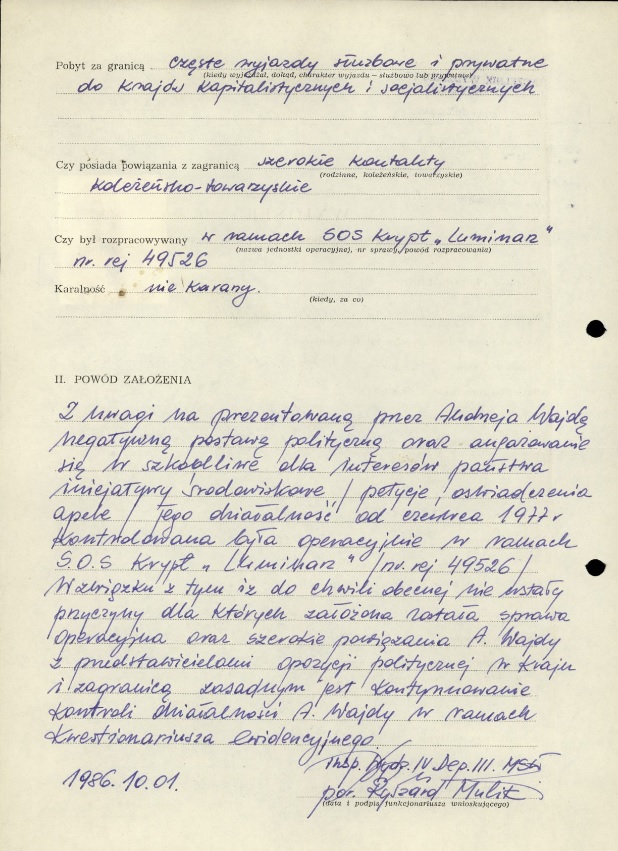 Pobyt za granicą częste wyjazdy służbowe i prywatne
(kiedy wyjeżdżał, dokąd, charakter wyjazdu – służbowo lub prywatnie)
do krajów kapitalistycznych i socjalistycznych
Czy posiada powiązania z zagranicą szerokie kontakty
(rodzinne, koleżeńskie, towarzyskie)
koleżeńsko-towarzyskie
Czy był rozpracowywany w ramach SOS krypt „Luminarz"
(nazwa jednostki operacyjnej, nr sprawy, powód rozpracowania)
nr. rej 49526
Karalność nie karany.
(kiedy, za co)
II. POWÓD ZAŁOŻENIA
Z uwagi na prezentowaną przez Andrzeja Wajdę
negatywną postawę polityczną oraz angażowanie
się w szkodliwe dla interesów państwa
inicjatywy środowiskowe / petycje, oświadczenia
apele / jego działalność od czerwca 1977 r
kontrolowana była operacyjnie w ramach
S.O.S Krypt „Luminarz" /nr. rej 49526/
W związku z tym iż do chwili obecnej nie ustały
przyczyny dla których założona została sprawa
operacyjna oraz szerokie powiązania A. Wajdy
z przedstawicielami opozycji politycznej w kraju
i zagranicą zasadnym jest kontynuowanie
kontroli działalności A. Wajdy w ramach
kwestionariusza ewidencyjnego.
insp. IV Dep. III. MSW
1986.10.01. por. Ryszard Mulik
(data i podpis funkcjonariusza wnioskującego)